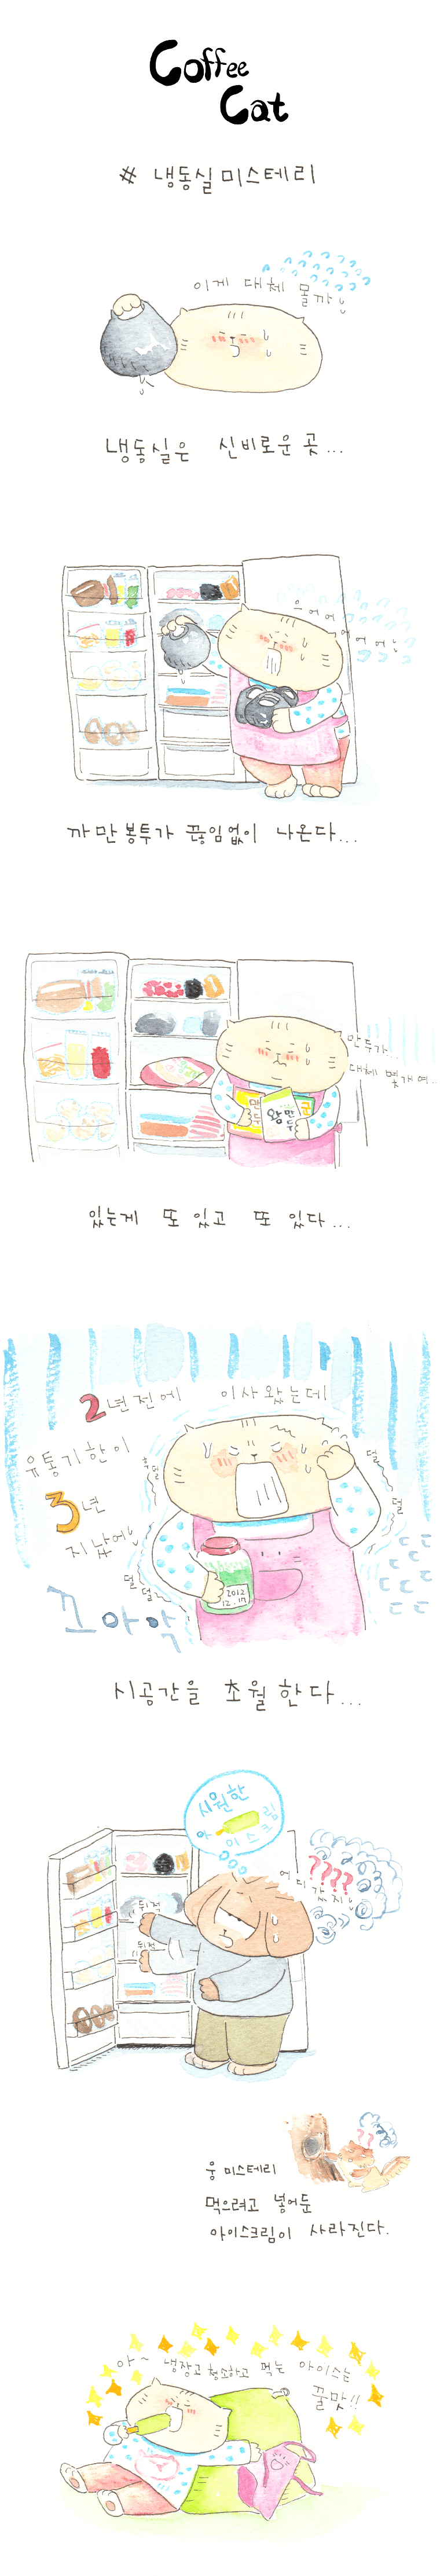 Coffee
Cat
# 냉동실 미스테리
이게 대체 뭘까
냉동실은 신비로운 곳...
으어어어어어어
까만봉투가 끊임없이 나온다...
만두가..
대체 몇개여..
왕만두
있는게 또 있고 또 있다...
2년전에 이사왔는데
유통기한이
3년
지났어
덜덜
덜덜
꼬아악
2012
12.17
시공간을 초월한다...
시원한
아이스크림
어디갔지
????
뒤적
뒤적
??
웅 미스테리
먹으려고 넣어둔
아이스크림이 사라진다.
아~ 냉장고 청소하고 먹는 아이스는
꿀맛!!